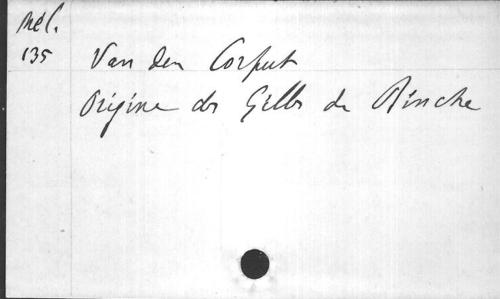 Mél.
135
Van den Corput
Origine des Gilles de Binche